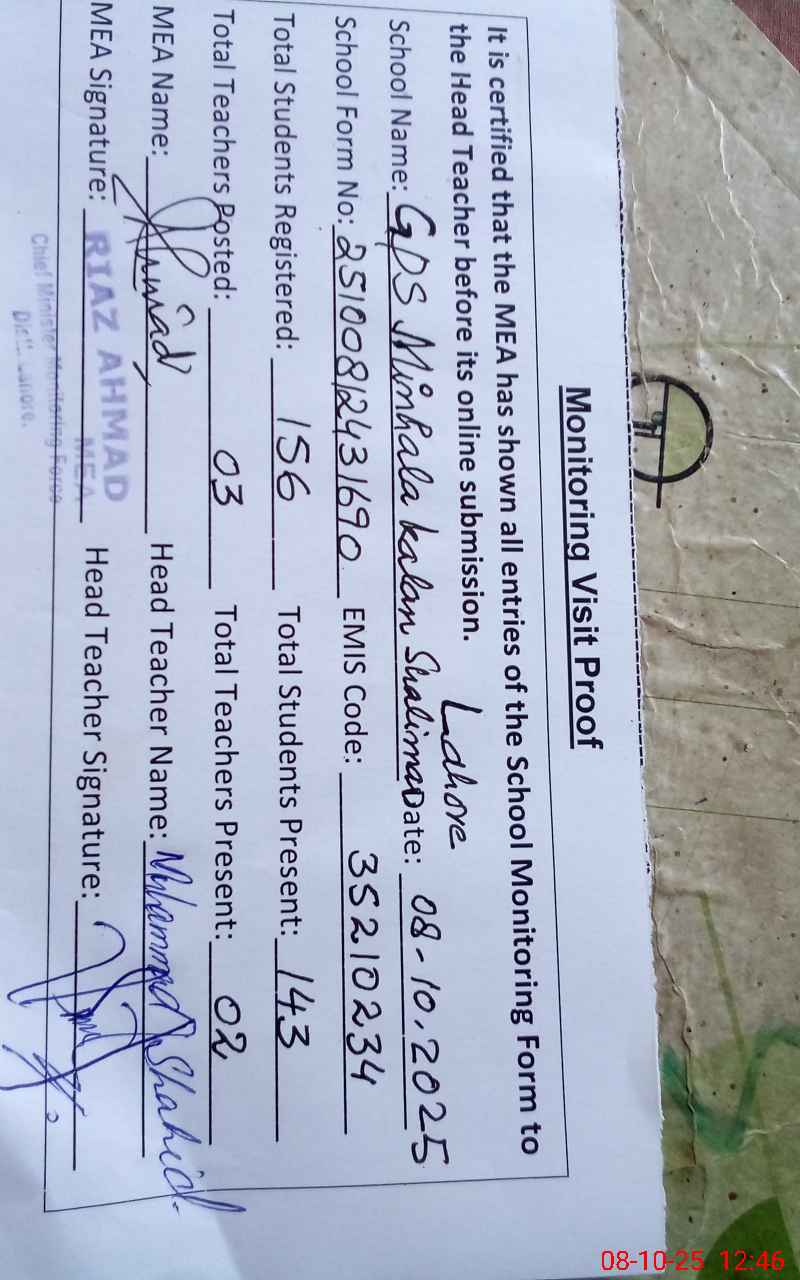 Monitoring Visit Proof
It is certified that the MEA has shown all entries of the School Monitoring Form to
the Head Teacher before its online submission.
Lahore
School Name: GPS Minhala kalan Shalimar Date: 08-10-2025
School Form No: 251008124331690 EMIS Code: 35210234
Total Students Registered: 156 Total Students Present: 143
Total Teachers Posted: 03 Total Teachers Present: 02
MEA Name: Head Teacher Name: Muhammad Shahid
MEA Signature: RIAZ AHMAD Head Teacher Signature:
MEA
Chief Minister Monitoring Force
Distt: Lahore.
08-10-25 12:46